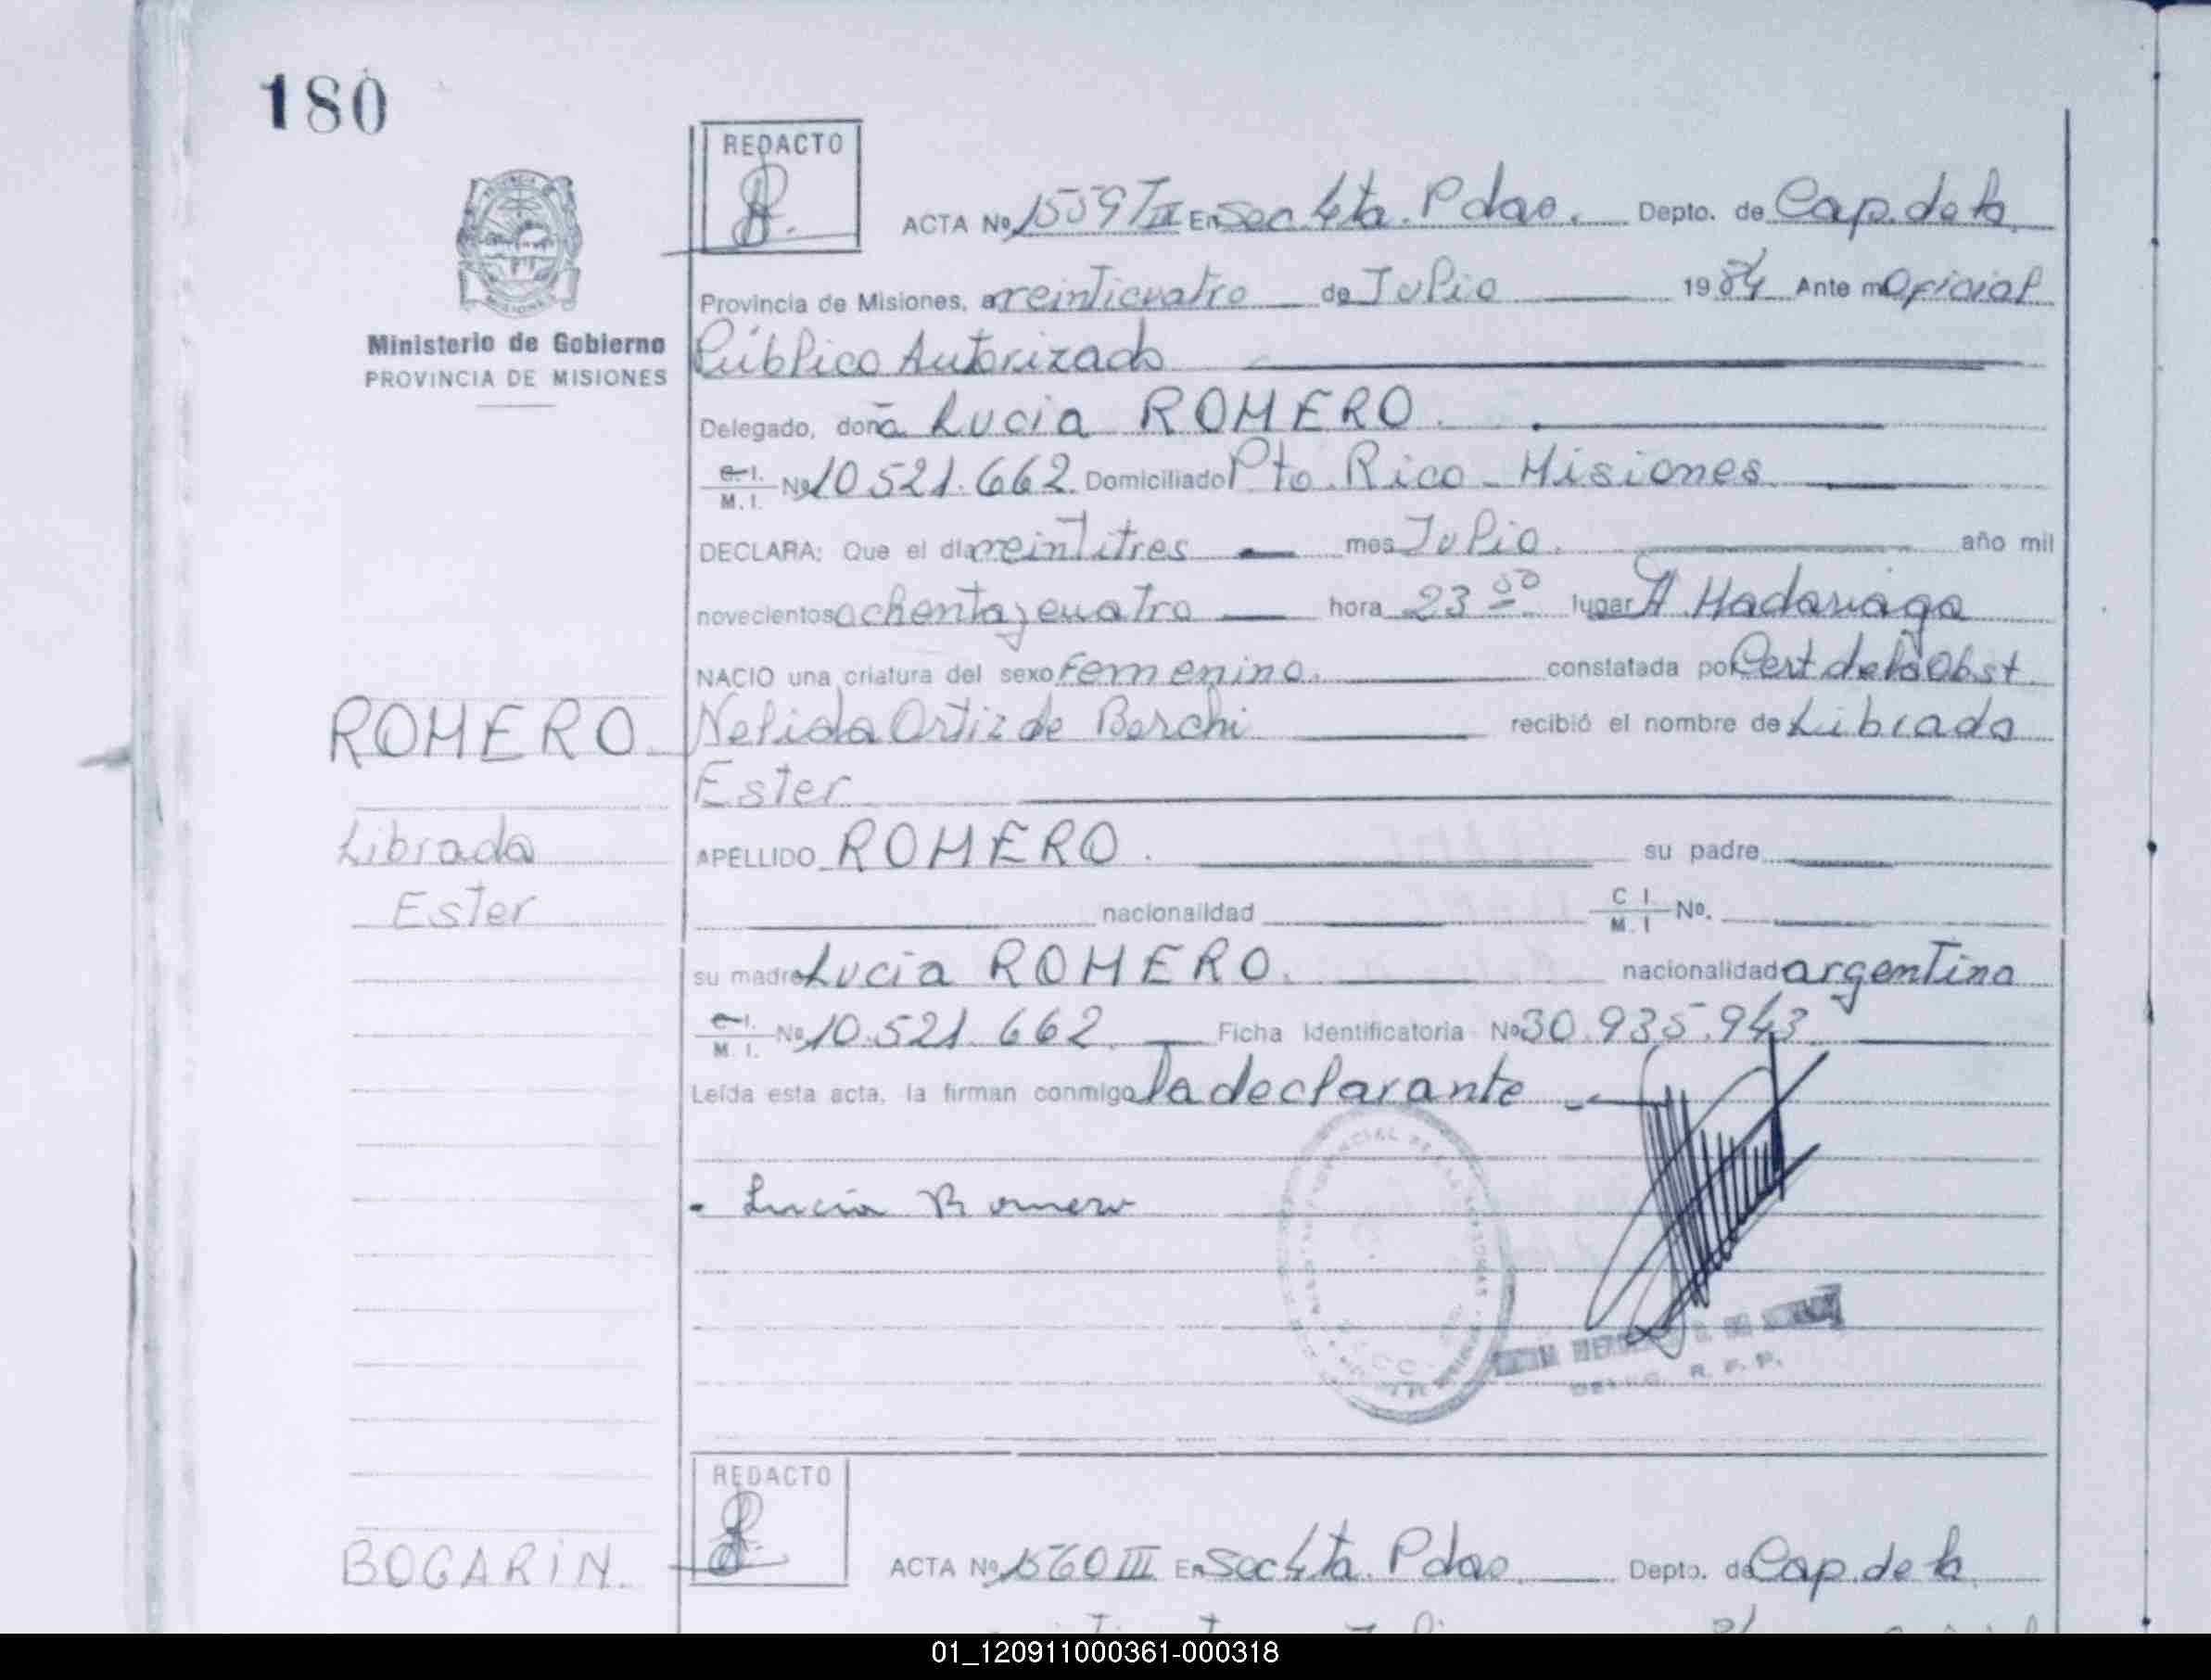 180
REDACTO
ACTA Nº 1559/III En Sec 4ta. Pdas. Depto. de Cap. de la
Provincia de Misiones, a veinticuatro de Julio 1984 Ante mi Oficial
Ministerio de Gobierno
PROVINCIA DE MISIONES
Público Autorizado
Delegado, doña Lucia ROMERO.
C.I. M.I. Nº 10.521.662. Domiciliado Pto. Rico - Misiones
DECLARA: Que el día veintitres mes Julio. año mil
novecientos ochenta y cuatro hora 23 00 lugar H. Madariaga
NACIO una criatura del sexo Femenino. constatada por Cert de la Obst.
ROMERO. Nelida Ortiz de Berchi recibió el nombre de Librada
Ester
Librada APELLIDO ROMERO. su padre
Ester nacionalidad C I. M. I Nº.
su madre Lucia ROMERO. nacionalidad argentina
C.I. M. I. Nº 10.521.662. Ficha Identificatoria Nº 30.935.943.
Leída esta acta, la firman conmigo la declarante
- Lucia Romero
R. P. P.
REDACTO
BOGARIN. ACTA Nº 1560 III En Sec 4ta. Pdas. Depto. de Cap. de la
01_120911000361-000318